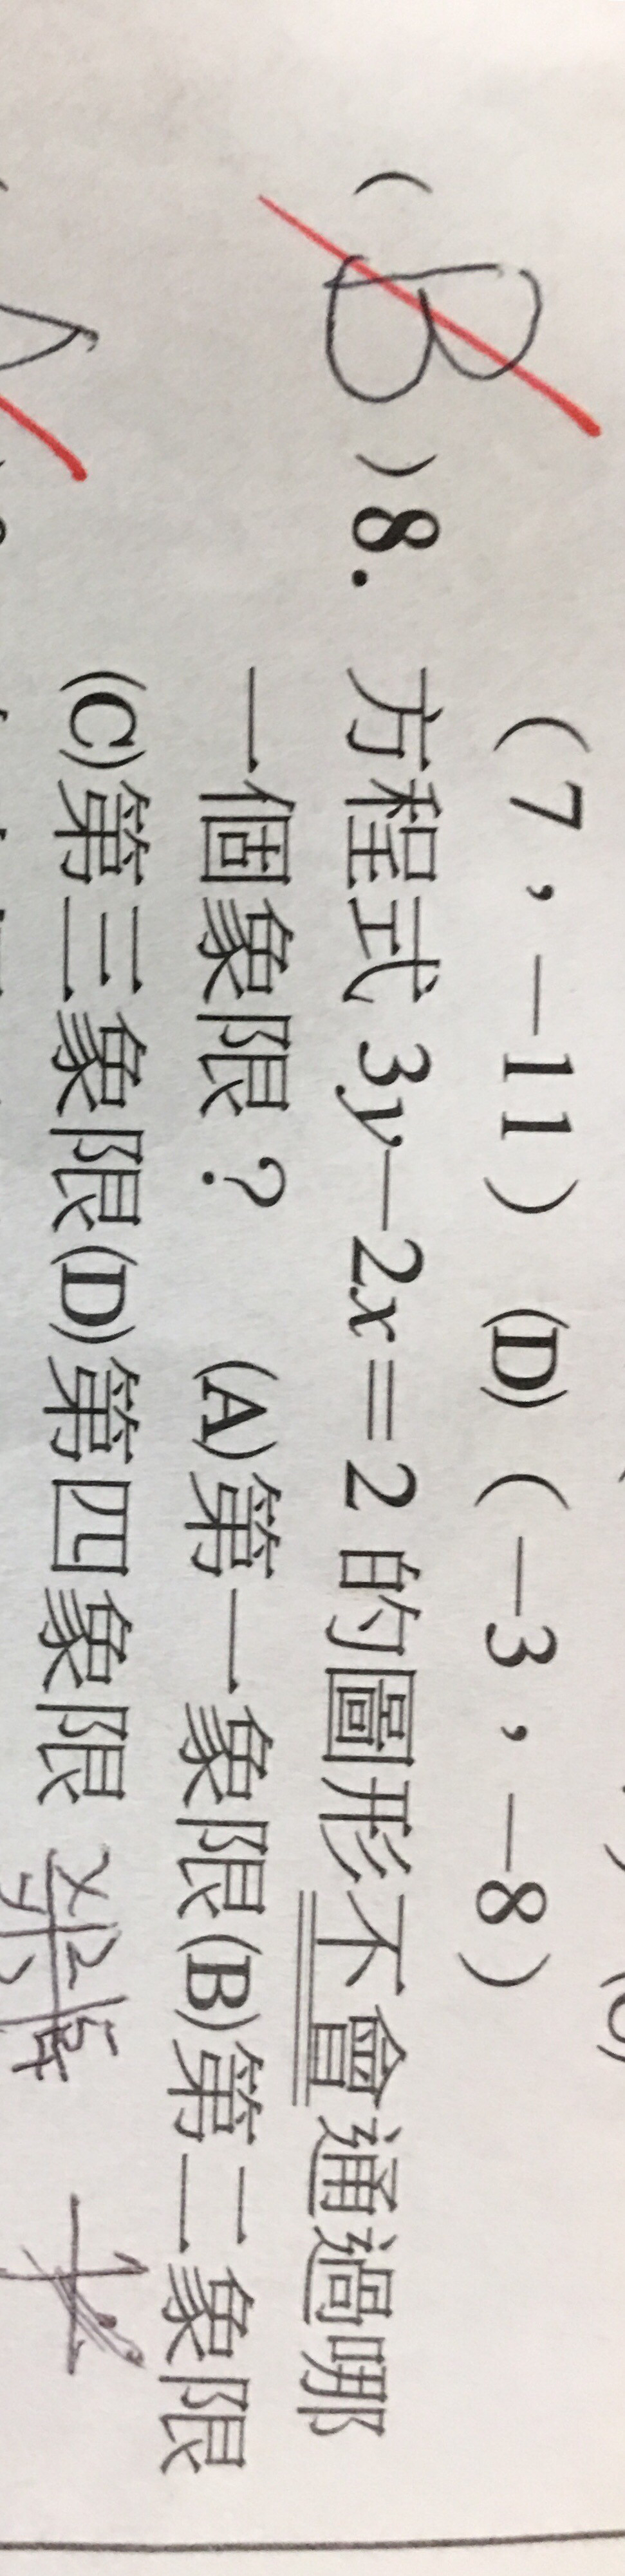 (7,-11) (D)(-3,-8)
(B)8. 方程式 3y-2x=2 的圖形不會通過哪
一個象限? (A)第一象限(B)第二象限
(C)第三象限(D)第四象限